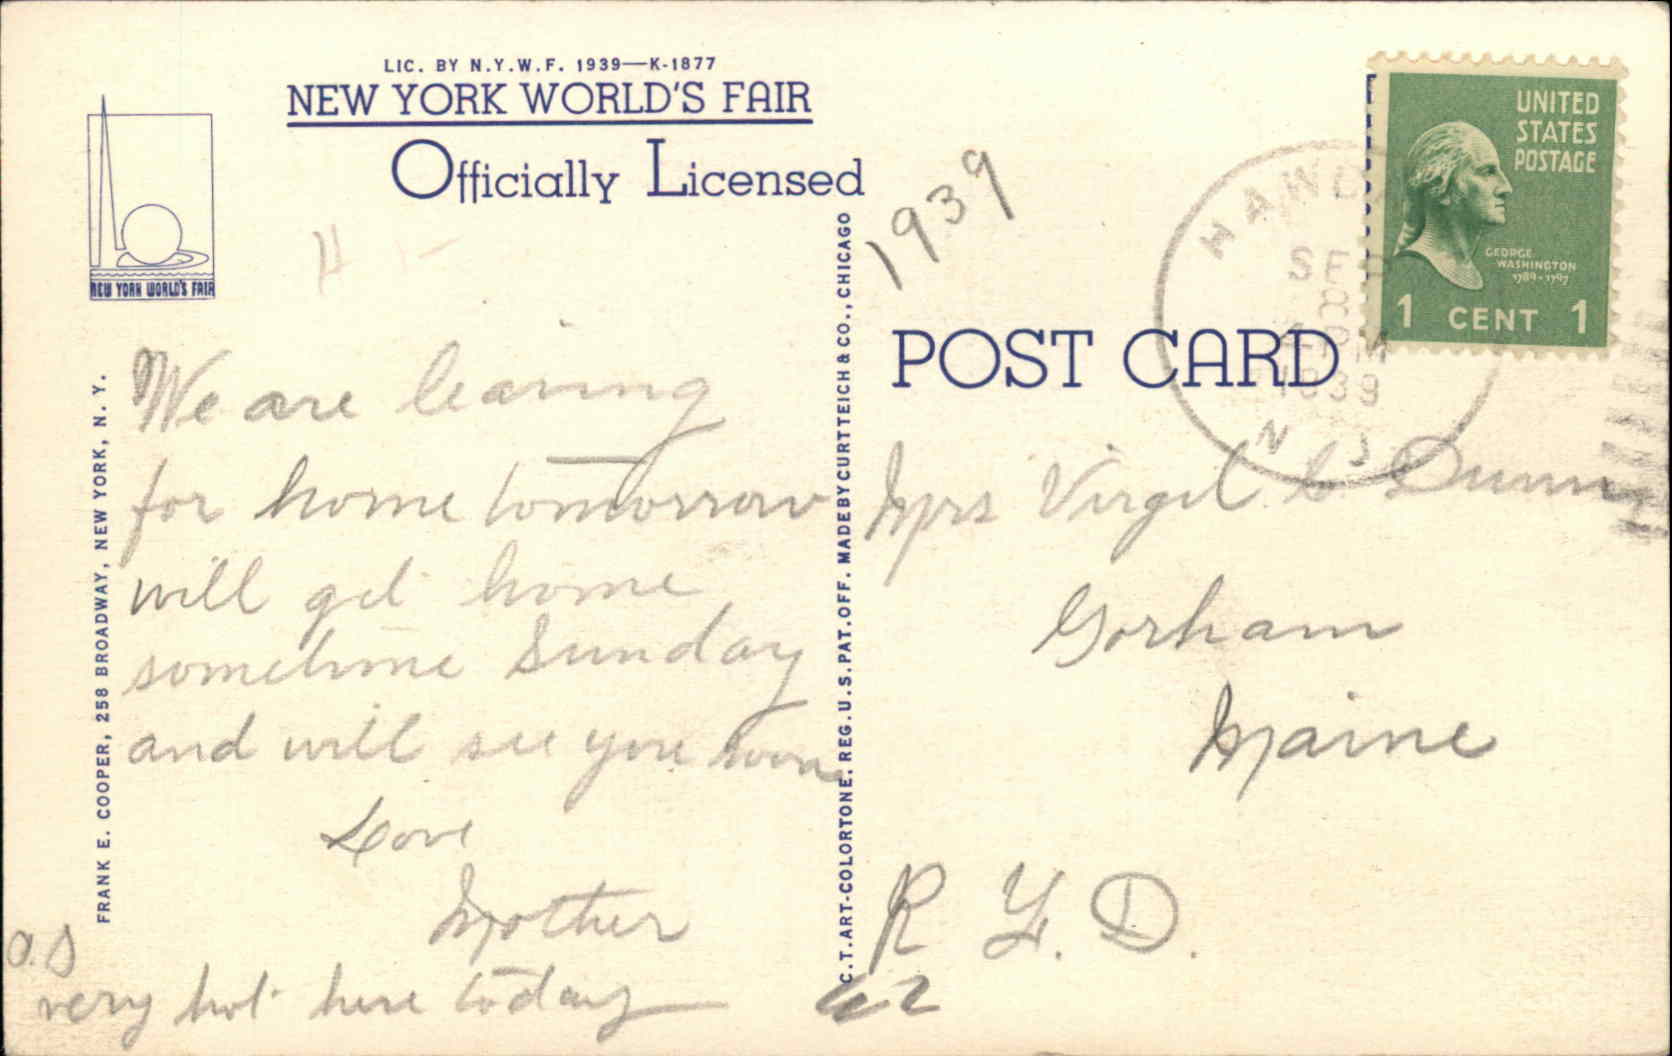 LIC. BY N.Y.W.F. 1939—K-1877
NEW YORK WORLD'S FAIR
Officially Licensed
NEW YORK WORLD'S FAIR
We are leaving
for home tomorrow
will get home
sometime Sunday
and will see you soon
Love
Mother
very hot here today
FRANK E. COOPER, 258 BROADWAY, NEW YORK, N. Y.
C.T. ART-COLORTONE. REG. U.S. PAT. OFF. MADE BY CURT TEICH & CO., CHICAGO
1939
POST CARD
UNITED
STATES
POSTAGE
GEORGE
WASHINGTON
1789-1797
1 CENT 1
SEP
8
PM
1939
N J
Mrs Virgil C. Dunn
Gorham
Maine
R. F. D.